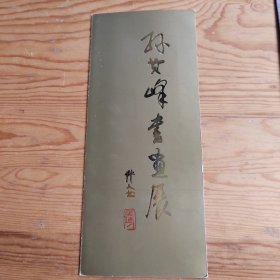 孙其峰书画展